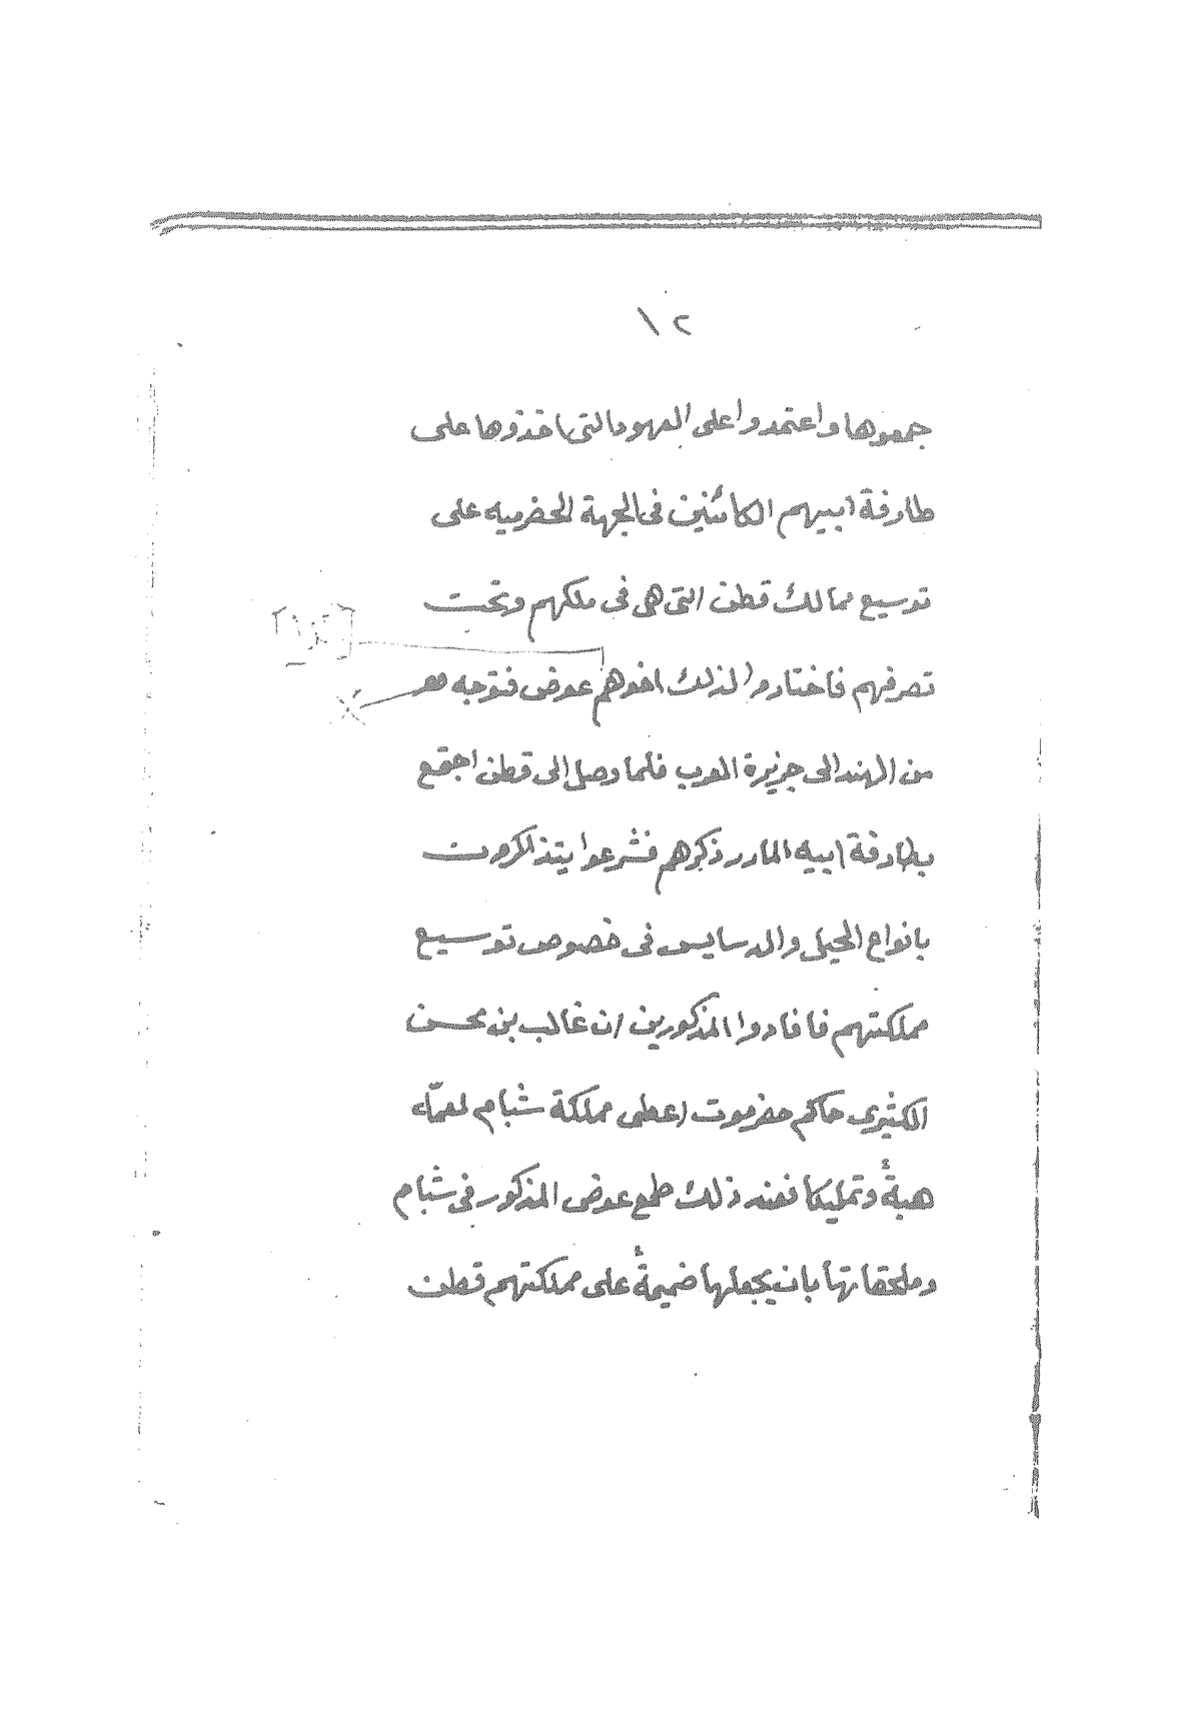 ١٢
جمعوها واعتمدوا على العهود التى اخذوها على
طارفة ابيهم الكائنين فى الجهة الحضرميه على
توسيع ممالك قطن التى هى فى ملكهم وتحت
تصرفهم فاختاروا لذلك اخوهم عوض فتوجه هو
من الهند الى جزيرة العرب فلما وصل الى قطن اجتمع
بطارفة ابيه المار ذكرهم فشرعوا يتذاكرون
بانواع الحيل والدسايس فى خصوص توسيع
مملكتهم فافادوا المذكورين ان غالب بن محسن
الكثيرى حاكم حضرموت اعطى مملكة شبام لعمّاء
هبةً وتمليكا فعند ذلك طمع عوض المذكور فى شبام
وملحقاتها بان يجعلها ضميمةً على مملكتهم قطن